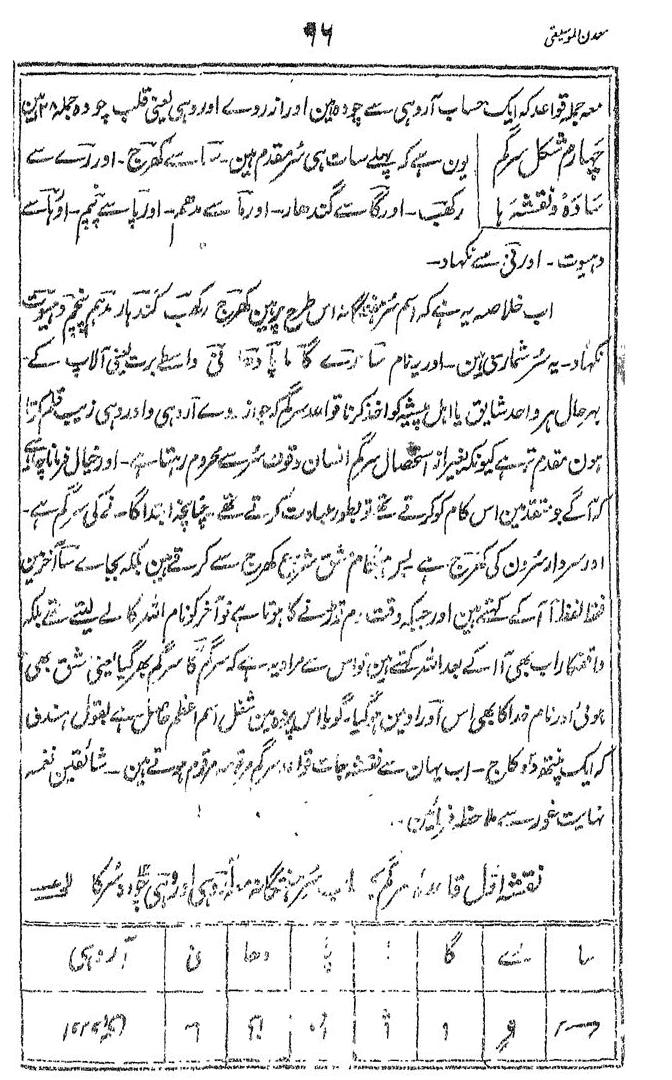 معدن الموسیقی
۹۶
معہ جملہ قواعد کہ ایک حساب آروہی سے چودہ ہین اور از روے اوروہی یعنی قلب چودہ جملہ ۲۸ ہین
چہارم شکل سرگم
سادہ و نقشہ ہا
یون ہے کہ پہلے سات ہی سُر مقدم ہین۔ سا سے کھرج۔ اور رے سے
رکھب۔ اور گا سے گندھار۔ اور ما سے مدھم۔ اور پا سے پنچم۔ اور دھا سے
دھیوت۔ اور نی سے نکھاد۔
اب خلاصہ یہ ہے کہ اسم سُر ہفتگانہ اس طرح پر ہین کھرج رکھب گندھار مدھم پنچم دھیوت
نکھاد۔ یہ سُر شماری ہین۔ اور یہ نام سا رے گا ما پا دھا نی واسطے برت یعنی آلاپ کے
بہر حال ہر واحد شایق یا اہل پیشہ کو اخذ کرنا قواعد سرگم کہ جو از روے آروہی و اوروہی زیب قلم کرتا
ہون مقدم ہے کیونکہ بغیر از استحصال سرگم انسان وقوف سُر سے محروم رہتا ہے۔ اور خیال فرمانا چاہیے
کہ آگے جو متقدمین اس کام کو کرتے تھے تو بطور عبادت کرتے تھے۔ چنانچہ ابتدا گانے کی سرگم ہے۔
اور سردار سُرون کی کھرج ہے پس ہنگام مشق شروع کھرج سے کرتے ہین بلکہ بجاے سا آخر مین
فقط لفظ آ آ کے کہتے ہین اور جبکہ وقت دم توڑنے کا ہوتا ہے تو آخر کو نام اللہ کا لے لیتے تھے بلکہ
واقفکار اب بھی آ ا کے بعد اللہ کہتے ہین تو اس سے مراد یہ ہے کہ سرگم کا سرگم بھر گیا یعنی مشق بھی
ہوئی اور نام خدا کا بھی اس اوراد مین ہو گیا۔ گویا اس پردہ مین شغل اسم اعظم حاصل ہے بقول ہندی
کہ ایک پنتھ دو کاج۔ اب یہان سے نقشہ جات قواعد سرگم مرقوم ہوتے ہین۔ شائقین نغمہ
نہایت غور سے ملاحظہ فرمائین۔
نقشہ اول قاعدہ سرگم سُر ہفتگانہ معہ آروہی اوروہی چودہ سُر کا
سا رے گا پا دھا نی آروہی